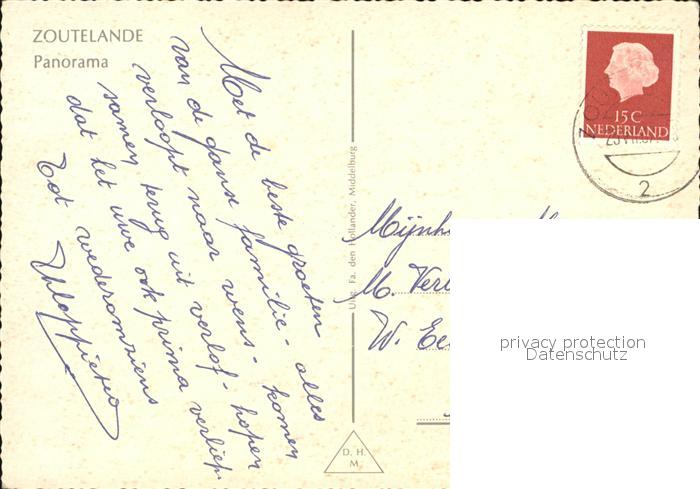 ZOUTELANDE
Panorama
Met de beste groeten
van de ganse familie - alles
verloopt naar wens - komen
samen terug uit verlof - hopen
dat het uwe ook prima verliep.
Tot wederomziens
Uitg. Fa. den Hollander, Middelburg
D. H.
M.
15 C
NEDERLAND
2
M.
W.
privacy protection
Datenschutz